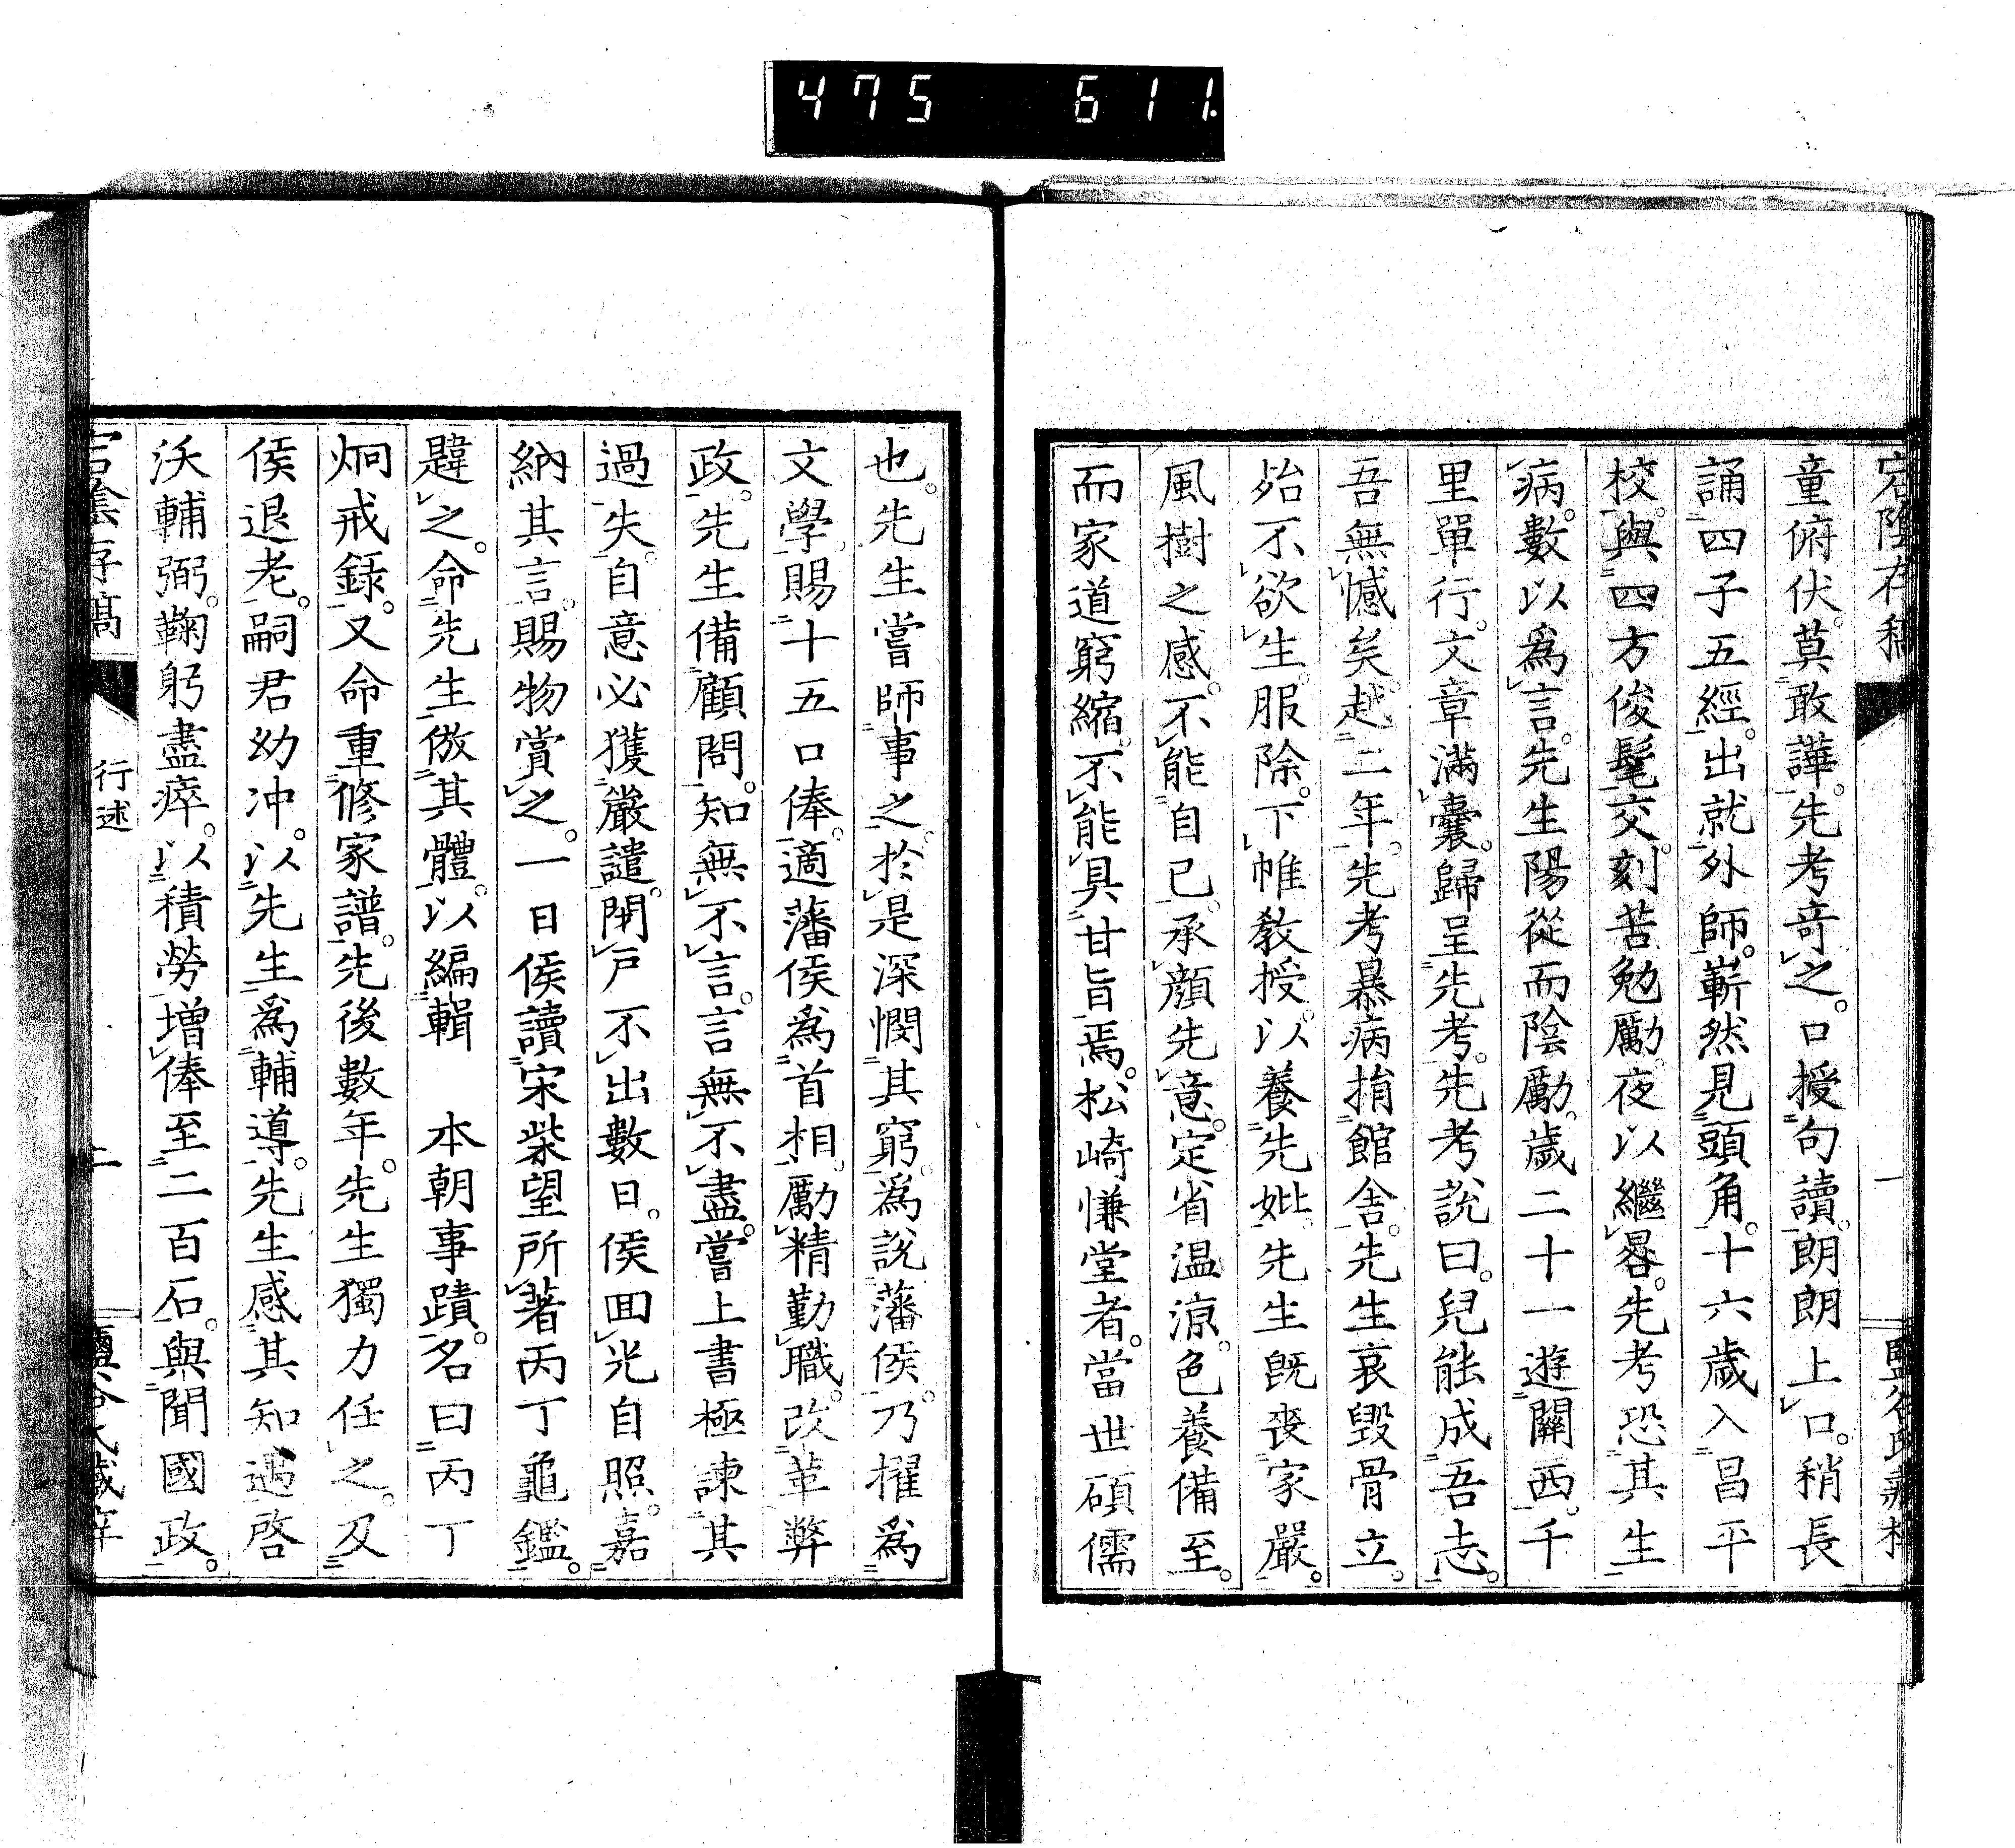 475 611
童俯伏。莫敢譁。先考奇之。口授句讀。朗朗上口。稍長
誦四子五經。出就外師。嶄然見頭角。十六歲入昌平
校。與四方俊髦交。刻苦勉勵。夜以繼晷。先考恐其生
病。數以爲言。先生陽從而陰勵。歲二十一遊關西。千
里單行。文章滿囊。歸呈先考。先考說曰。兒能成吾志。
吾無憾矣。越二年。先考暴病捐館舍。先生哀毀骨立。
殆不欲生。服除。下帷教授。以養先妣。先生既喪家嚴。
風樹之感。不能自已。承顏先意。定省温凉。色養備至。
而家道窮縮。不能具甘旨焉。松崎慊堂者。當世碩儒
也。先生嘗師事之。於是深憫其窮。爲說藩侯。乃擢爲
文學。賜十五口俸。適藩侯爲首相。勵精勤職。改革弊
政。先生備顧問。知無不言。言無不盡。嘗上書極諫其
過失。自意必獲嚴譴。閉戶不出數日。侯回光自照。嘉
納其言。賜物賞之。一日侯讀宋柴望所著丙丁龜鑑。
韙之。命先生倣其體。以編輯 本朝事蹟。名曰丙丁
炯戒錄。又命重修家譜。先後數年。先生獨力任之。及
侯退老。嗣君幼冲。以先生爲輔導。先生感其知遇。啓
沃輔弼。鞠躬盡瘁。以積勞增俸至二百石。與聞國政。
行述
二